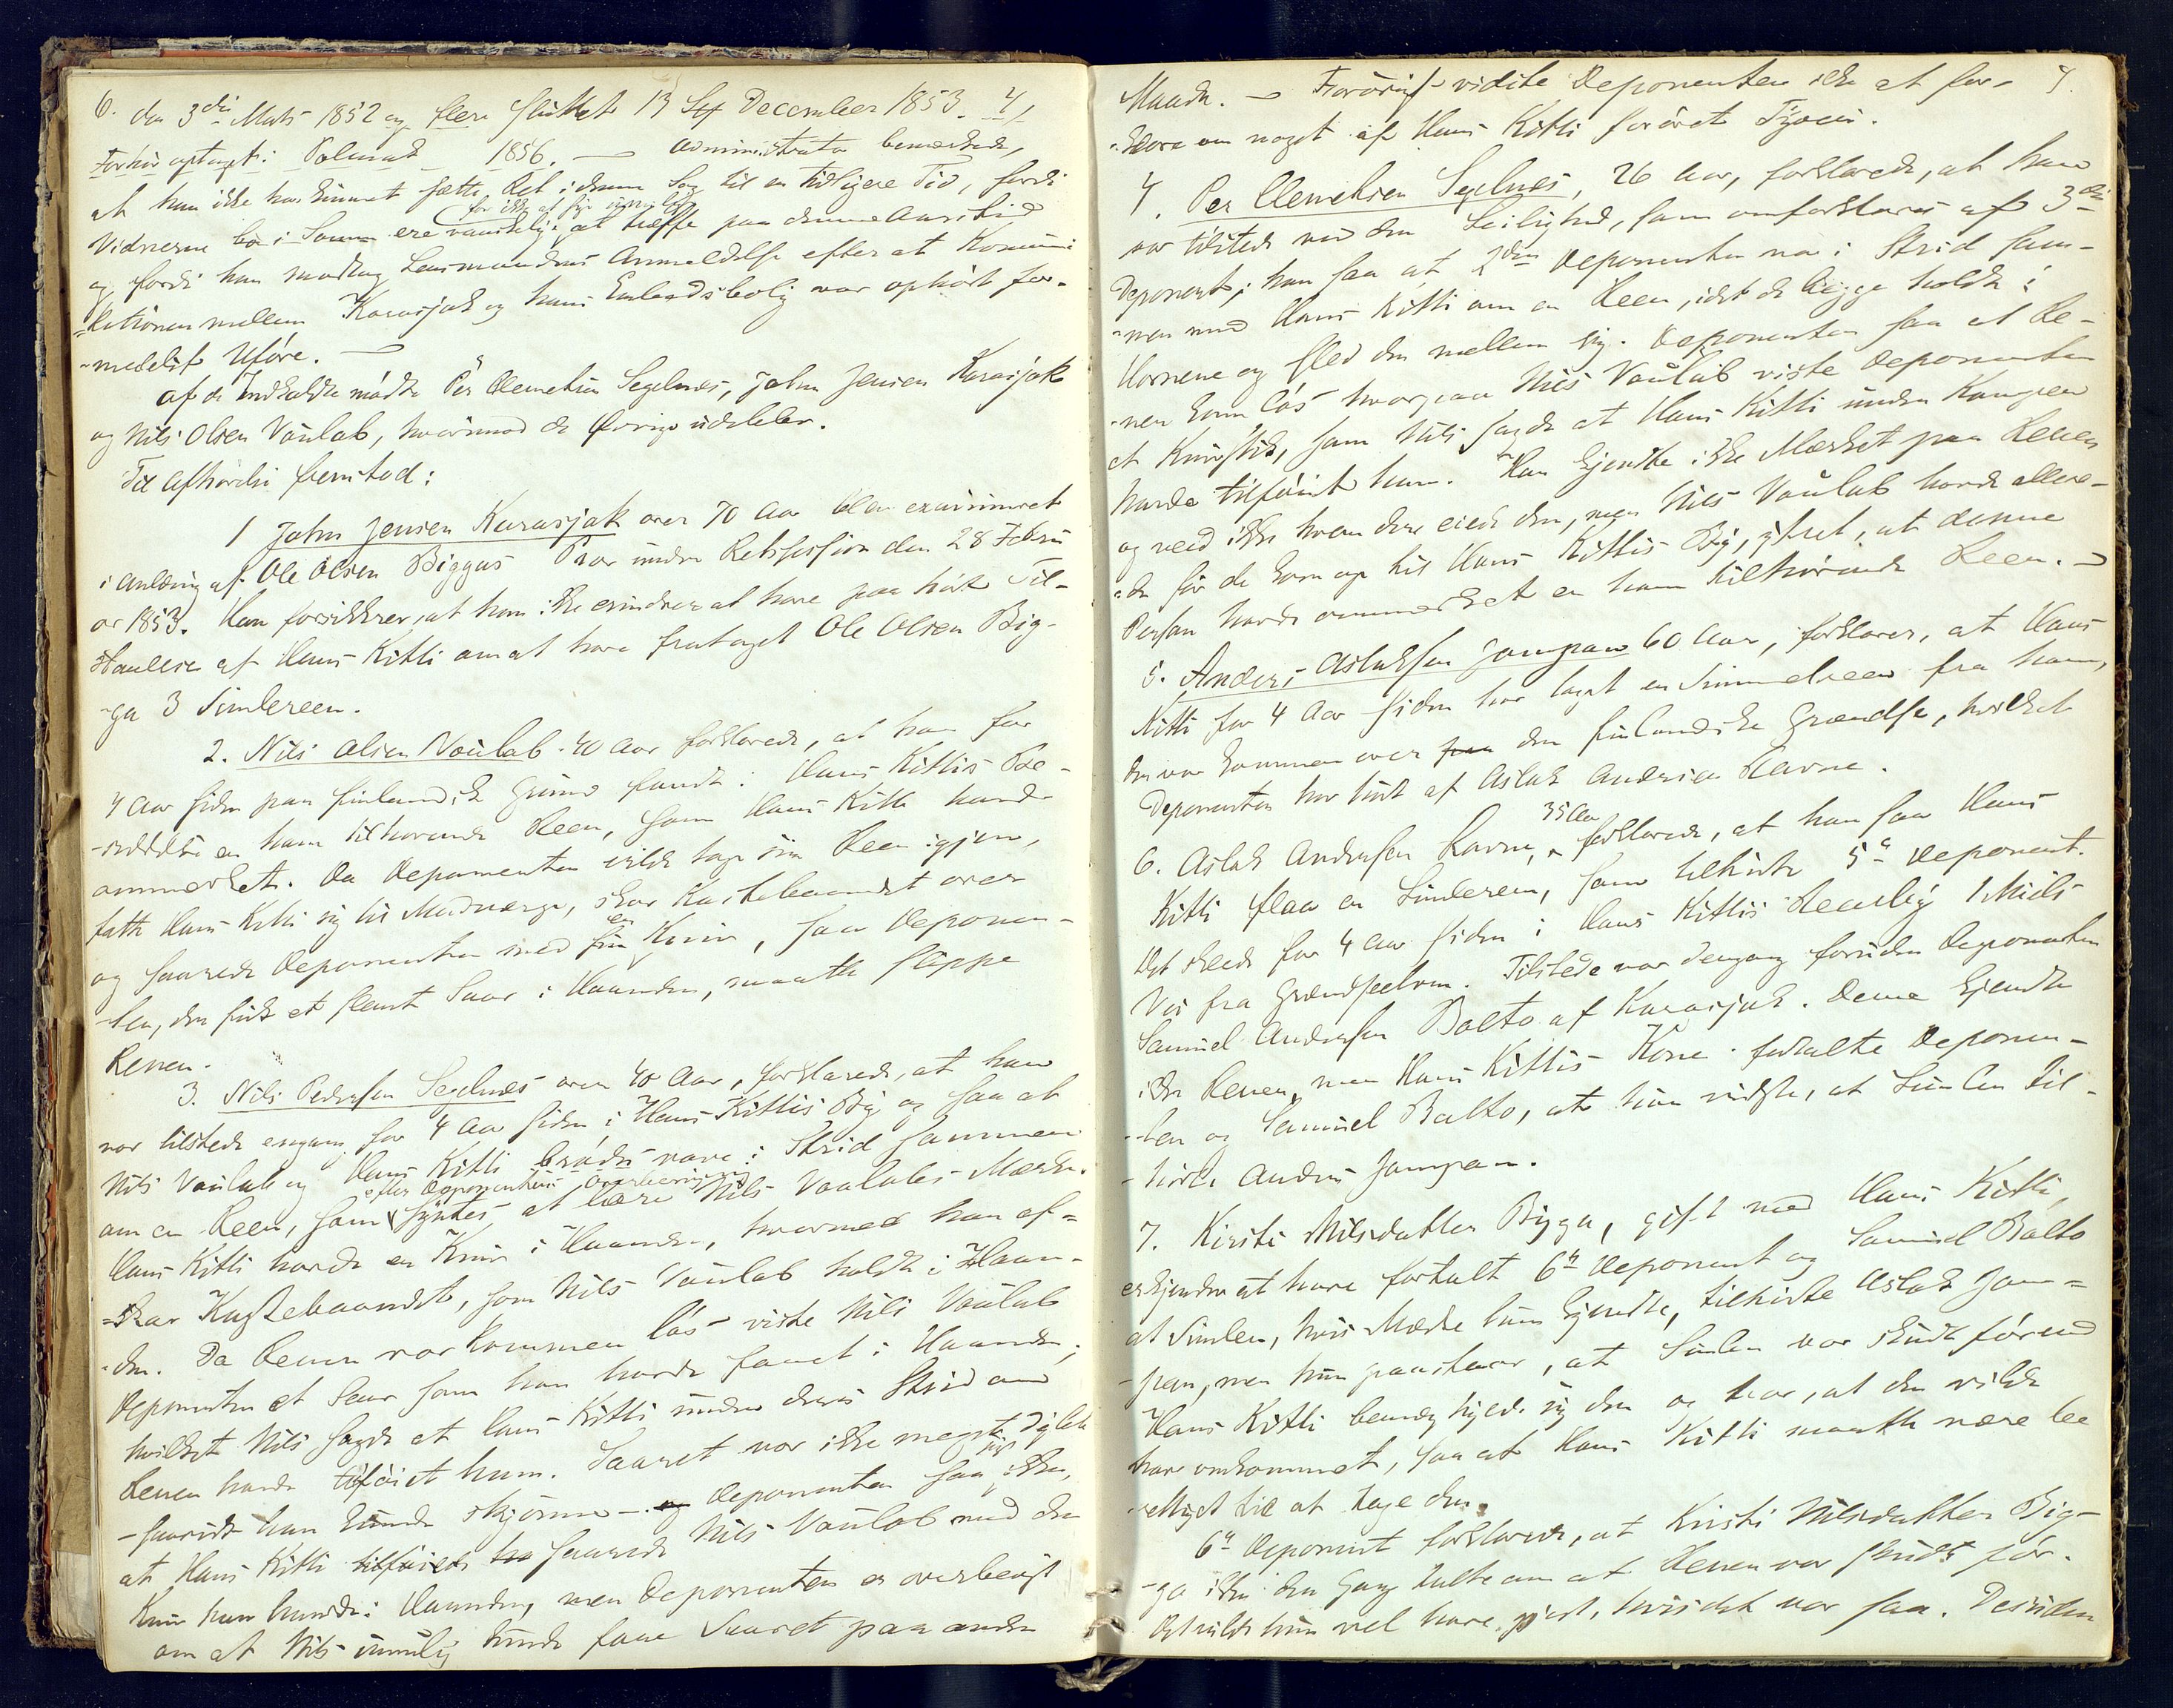 6. den 3die Marts 1852 og flere sluttet 13 December 1853. 4/
Forhør optaget i Polmak 1856. — Administrator bemærkede,
at han ikke har kunnet sætte Ret i denne Sag til en tidligere Tid, fordi
for ikke at sige umulige
Vidnerne ere vanskelige at træffe paa denne Aarstid
og fordi han modtog Lensmandens Anmeldelse efter at Kommuni-
-kationen mellem Karasjok og hans Embedsbolig var ophørt for-
-medelst Uføre. —
Af de Indkaldte mødte Per Clemetsen Segelnæs, John Jensen Karasjok
og Nils Olsen Vaulab, hvorimod de Øvrige udeblev.
Til Afhørelse fremstod:
1 John Jensen Karasjok over 70 Aar blev examineret
i Anledning af Ole Olsen Biggas Prov under Retssession den 28 Febru
ar 1853. Han forsikkrer, at han ikke erindrer at have paahørt Til-
staaelse af Hans Kitti om at have frataget Ole Olsen Big-
-ga 3 Simlereen.
2. Nils Olsen Vaulab 40 Aar forklarede, at han for
4 Aar siden paa finlandsk Grund fandt i Hans Kittis Re-
en ham tilhørende Reen, som Hans Kitti havde
ommerket. Da Deponenten vilde tage sin Reen igjen,
satte Hans Kitti sig til Modværge, skar Kastebaandet over
og saarede Deponenten med en Kniv, saa Deponen-
-ten, der fik et slemt Saar i Haanden, maatte slippe
Renen.
3. Nils Pedersen Segelnæs over 40 Aar, forklarede, at han
var tilstede engang for 4 Aar siden i Hans Kittis By og saa at
Nils Vaulab og Hans Kitti vare i Strid sammen
efter Deponentens Overbeviisning
om en Reen, som syntes at bære Nils Vaulabs Mærke.
Hans Kitti havde en Kniv i Haanden, hvormed han af-
-skar Kastebaandet, som Nils Vaulab holdt i Haan-
-den. Da Renen var kommen løs viste Nils Vaulab
Deponenten et Saar som han havde faaet i Haanden,
hvilket Nils sagde at Hans Kitti under deres Strid om
Renen havde tilføiet ham. Saaret var ikke meget dybt
-saavidt han kunde skjønne - og Deponenten saa ikke,
at Hans Kitti tilføiede ha saarede Nils Vaulab med den
Kniv han havde i Haanden, men Deponenten er overbeviist
om at Nils umulig kunde faae Saaret paa anden
7.
Maade. — Forøvrigt vidste Deponenten ikke at for-
-klare om noget af Hans Kitti forøvet Tyveri.
4. Per Clemetsen Segelnæs, 26 Aar, forklarede, at han
var tilstede ved den Leilighed, som omforklares af 3die
Deponent; han saa at 2den Deponent var i Strid sam-
-men med Hans Kitti om en Reen, idet de begge holdt i
Hornene og sled den mellem sig. Deponenten saa at Re-
-nen kom løs hvorpaa Nils Vaulab viste Deponenten
et Knivstik, som Nils sagde at Hans Kitti under Kampen
havde tilføiet ham. Han kjendte ikke Mærket paa Renen
og veed ikke hvem der eiede den, men Nils Vaulab havde allere-
-de før de kom op til Hans Kittis By, yttret, at denne
Person havde ommærket en ham tilhørende Reen. —
5. Anders Aslaksen Jompan 60 Aar, forklarer, at Hans
Kitti for 4 Aar siden har taget en Simmelreen fra ham,
der var kommen over paa den finlandske Grændse, hvilket
Deponenten har hørt af Aslak Andersen Ravna.
35 Aar
6. Aslak Andersen Ravna, forklarede, at han saa Hans
Kitti slaa en Simlereen, som tilhørte 5te Deponent.
Det skede for 4 Aar siden i Hans Kittis Reenby 1 Miils
Vei fra Grændseelven. Tilstede var dengang foruden Deponenten
Samuel Andersen Balto af Karasjok. Denne kjendte
ikke Renen, men Hans Kittis Kone fortalte Deponen-
-ten og Samuel Balto, at hun vidste, at Simlen til-
-hørte Anders Jompan.
7. Kirsti Nilsdatter Bigga, gift med Hans Kitti,
erkjender at have fortalt 6te Deponent og Samuel Balto
at Simlen, hvis Mærke hun kjendte, tilhørte Aslak Jom-
-pan, men hun paastaar, at Simlen var skudt førend
Hans Kitti bemægtigede sig den og troer, at den vilde
have omkommet, saa at Hans Kitti maatte være be-
-rettiget til at tage den.
6te Deponent forklarede, at Kirsti Nilsdatter Big-
-ga ikke den Gang talte om at Renen var skudt før.
Det vilde hun vel have gjort, hvis det var saa. Desuden